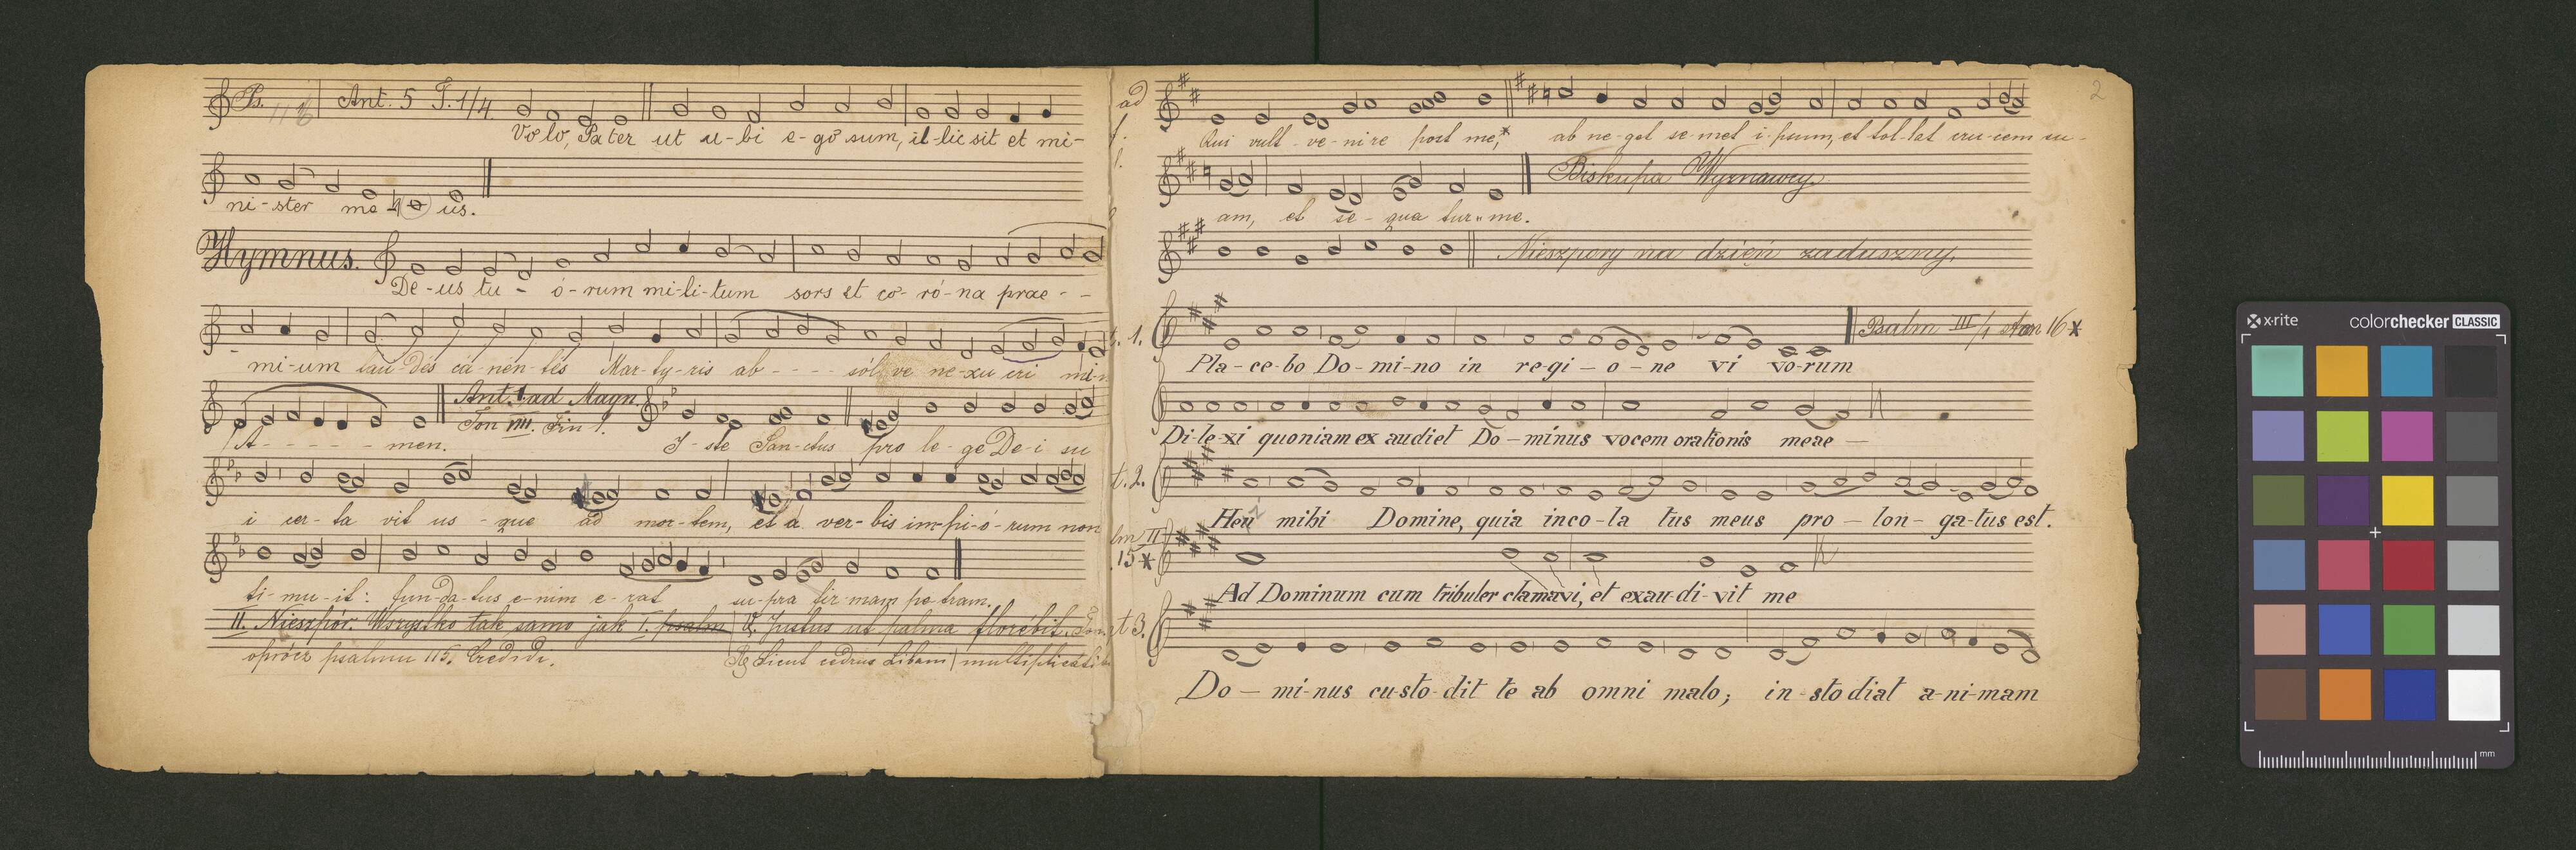 Ps. 116 Ant. 5 T. 1/4.
Vo-lo, Pa-ter ut u-bi e-go sum, il-lic sit et mi-
ni-ster me - us.
Hymnus.
De-us tu - ó-rum mi-li-tum sors et co-ró-na prae - -
mi-um lau-des ca-nén-tes Mar-ty-ris ab - - - - sól ve ne-xu cri mi-n
A - - - - - men.
Ant. 1 ad Magn.
Ton VIII. Fin 1.
I-ste San-ctus pro le-ge De-i su
i cer-ta vit us-que ad mor-tem, et a ver-bis im-pi-ó-rum non
ti-mu-it: fun-da-tus e-nim e-rat su-pra fir-mam pe-tram.
II. Nieszpór. Wszystko tak samo jak I. psalm
oprócz psalmu 115. Credidi.
V. Justus ut palma florébit.
R. Sicut cedrus Libani multiplicabi
2
ad
Qui vult ve-ni-re post me,* ab ne-get se-met i-psum, et tol-lat cru-cem su-
am, et se-qua tur me.
Biskupa Wyznawcy.
Nieszpory na dzień zaduszny.
1.
Psalm III/4 ston 16 *
Pla-ce-bo Do-mi-no in re-gi-o-ne vi vo-rum
Di-le-xi quoniam ex audiet Do-minus vocem orationis meae —
t. 2.
Heu mihi Domine, quia inco-la tus meus pro-lon-ga-tus est.
lm II
15 *
Ad Dominum cum tribuler clamavi, et exau-di-vit me
t 3.
Do-mi-nus cu-sto-dit te ab omni malo; in-sto diat a-ni-mam
x-rite colorchecker CLASSIC
mm